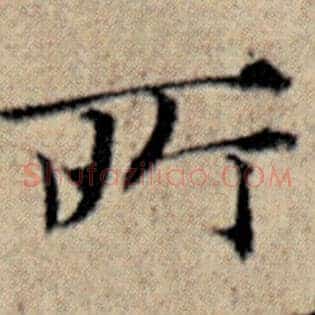 所
Shufaziliao.COM